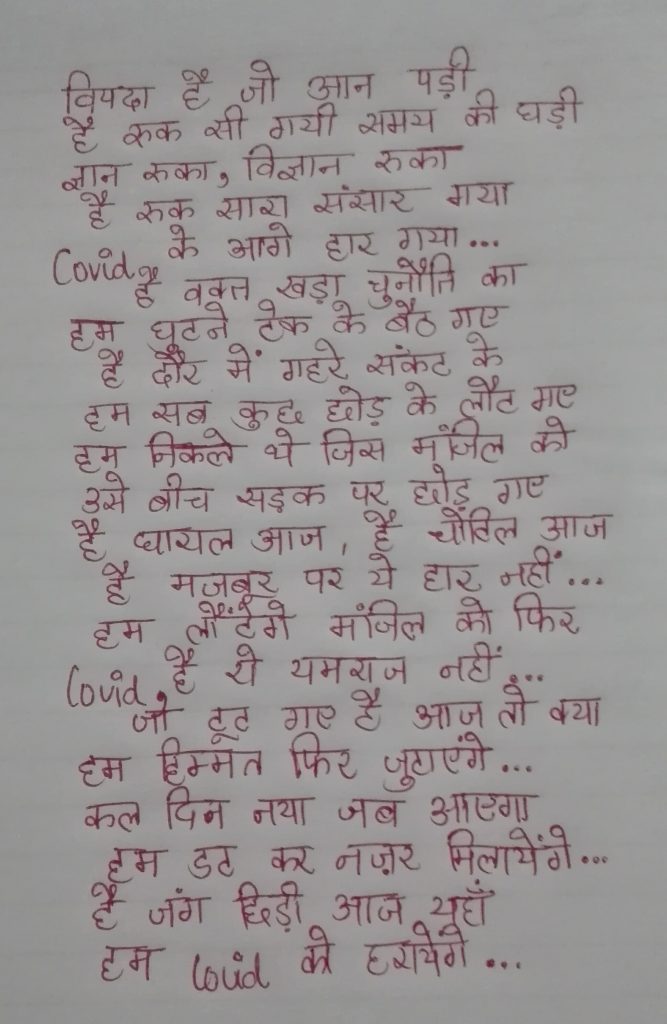 विपदा है जो आन पड़ी
है रुक सी गयी समय की घड़ी
ज्ञान रुका, विज्ञान रुका
है रुक सारा संसार गया
Covid के आगे हार गया...
है वक्त खड़ा चुनौति का
हम घुटने टेक के बैठ गए
है दौर में गहरे संकट के
हम सब कुछ छोड़ के लौट गए
हम निकले थे जिस मंजिल को
उसे बीच सड़क पर छोड़ गए
है घायल आज, है चोटिल आज
है मजबूर पर ये हार नहीं...
हम लौटेंगे मंजिल को फिर
Covid है ये यमराज नहीं...
जो टूट गए है आज तो क्या
हम हिम्मत फिर जुटाएंगे...
कल दिन नया जब आएगा
हम डट कर नज़र मिलायेंगे...
है जंग छिड़ी आज यहाँ
हम Covid को हरायेंगे...